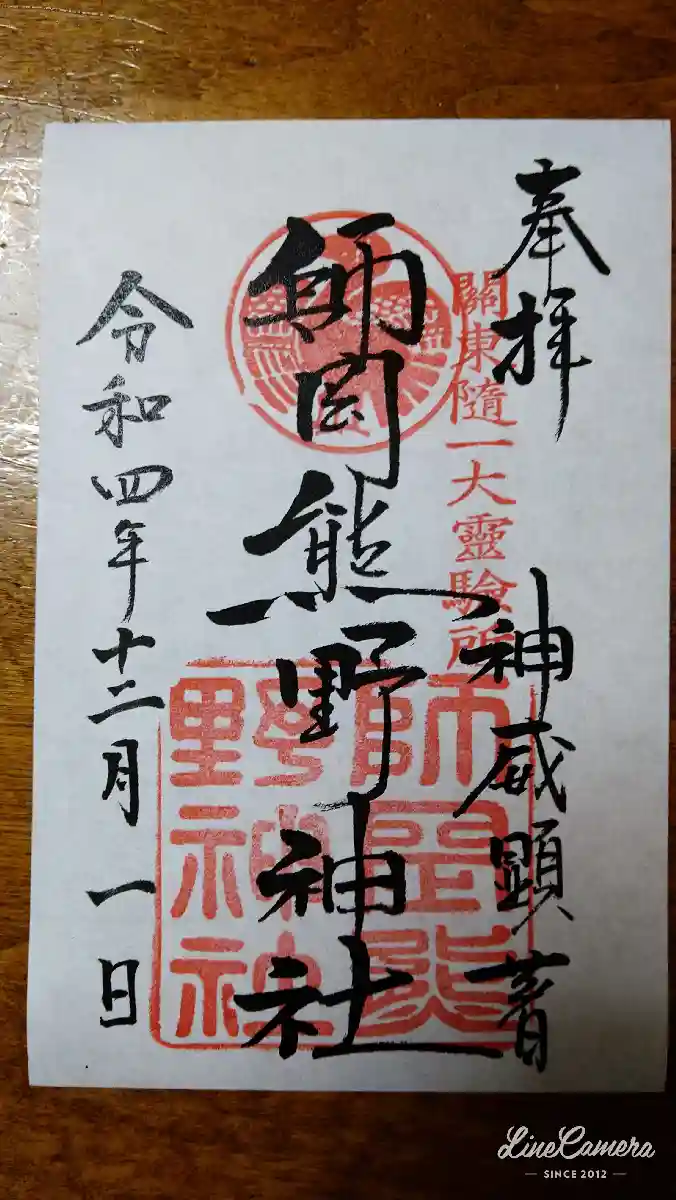 奉拝
關東隨一大靈驗所
神威顕著
師岡熊野神社
師岡熊
野神社
令和四年十二月一日
LineCamera
SINCE 2012